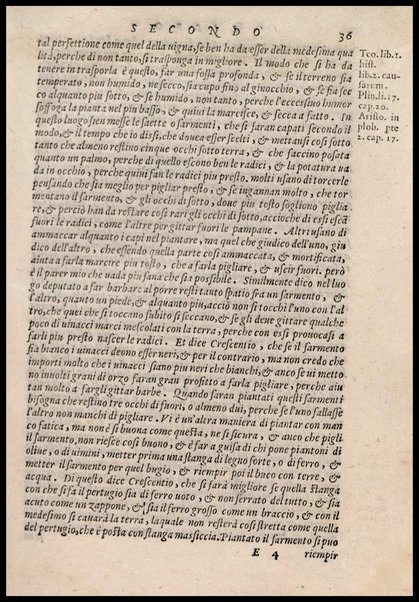 SECONDO
36
tal perfettione come quel della uigna, se ben ha da esser della medesima qua
lità, perche di non tanto, si trasponga in migliore. Il modo che si ha da
tenere in trasporla è questo, far una fossa profonda, & se il terreno sia
temperato, non humido, ne secco, sia cupo fino al ginocchio, & se sia sec
co alquanto piu sotto, & se humido, non tanto, perche l'eccessiuo humor
soffoga la pianta nel piu basso, & quiui la marcisce, & secca a fatto. In
questo luogo sien messe le saette o sarmenti, che si saran capati secondo il
modo, & il tempo che io dissi, che douea esser scelti, & mettansi cosi sotto
tanto che almeno restino cinque occhi sotto terra, & che faccino posata
quanto un palmo, perche di quello escono ben le radici, & la potatura ua
da in occhio, perche quiui fan le radici piu presto. molti usano di torcerle
pensando che sia meglio per pigliar presto, & se ingannan molto, che tor
mentano il sarmento, & gli occhi di sotto, doue piu tosto sogliono piglia
re, & perciò han da restare cosi rari gli occhi di sotto, acciochè di essi escã
fuori le radici, come l'altre per gittar fuori le pampane. Altri usano di
ammaccar alquanto i capi nel piantare, ma quel che giudico dell'uno, giu
dico dell'altro, che essendo quella parte cosi ammaccata, & mortificata,
aiuta a farla marcire piu tosto, che a farla pigliare, & uscir fuori. però
è il parer mio che uada piu sana che sia possibile. Similmente dico nel luo
go deputato a far barbare al porre resti tanto spatio fra un sarmento, &
l'altro, quanto un piede, & alquanto piu, acciò non si tocchi l'uno con l'al
tro, che quei che si toccano subito si seccano, & se gli deue gittare qualche
poco di uinacci marci mescolati con la terra, perche con essi prouocasi a
farli piu presto nascer le radici. Et dice Crescentio, che se il sarmento
sia bianco i uinacci deono esser neri, & per il contrario, ma non credo che
importi molto che i uinacci siano piu neri che bianchi, & anco se ui metto
no inuolti grani di orzo faran gran profitto a farla pigliare, perche aiu
tan molto a fargli gittar barbe. Quando saran piantati questi sarmenti
bisogna che restino tre occhi di fuori, o almeno dui, perche se l'uno fallasse
l'altro non manchi di pigliare. Vi è un'altra maniera di piantar con man
co fatica, ma non è si buona come questa, ne si sicura, & anco che pigli
il sarmento, non riesce cosi buono, & è far a guisa di chi pone piantoni di
oliue, o di uimini, metter prima una stanga di legno forte, o di ferro, &
metter il sarmento per quel bugio, & riempir poi il buco con terre, &
acqua. Di questo dice Crescentio, che si farà migliore se quella stanga
con che si fa il pertugio sia di ferro uoto, & non serrato del tutto, & sia
acuto come un zappone, & sia il ferro grosso come un braccio, & con il
medesimo si cauarà la terra, laquale non resterà cosi stretta come quella
del pertugio, che è posta con stanga massiccia. Piantato il sarmento si puo
E 4 riempir
Teo. lib. 2.
hist.
lib. 2. cau-
sarum.
Plin. li. 17.
cap. 20.
Aristo. in
prob. pte
2. cap. 17.